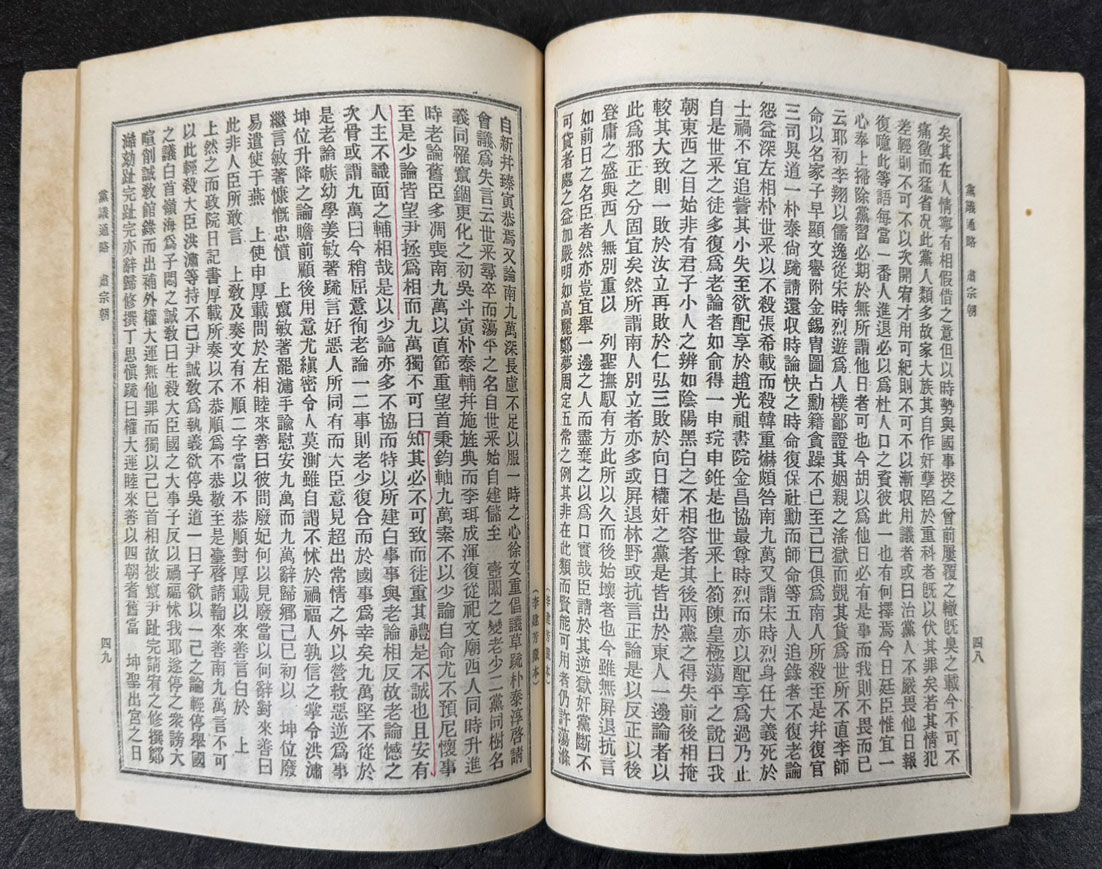 黨議通略 肅宗朝 四八
矣其在人情寧有相假借之意但以時勢與國事揆之曾前屢覆之轍旣臭之載今不可不
痛徵而猛省况此黨人類多故家大族其自作奸孽陷於重科者旣以伏其罪矣若其情犯
差輕則不可不以次開宥才用可紀則不可不以漸取用議者或曰治黨人不嚴畏他日報
復噫此等語每當一番人進退必以爲杜人口之資彼此一也有何擇焉今日廷臣惟宜一
心奉上掃除黨習必期於無所謂他日者可也今胡以爲他日必有是事而我則不畏而已
云耶初李翔以儒逸從宋時烈遊爲人樸鄙證其姻親之潘獄而覬其貨爲世所不直李師
命以名家子早顯文譽附金錫冑圖占勳籍貪躁不已至己巳俱爲南人所殺至是幷復官
三司吳道一朴泰尙疏請還收時論快之時命復保社勳而師命等五人追錄者不復老論
怨益深左相朴世采以不殺張希載而殺韓重爀頗咎南九萬又謂宋時烈身任大義死於
士禍不宜追訾其小失至欲配享於趙光祖書院金昌協最尊時烈而亦以配享爲過乃止
自是世采之徒多復爲老論者如俞得一申琓申銋是也世采上箚陳皇極蕩平之說曰我
朝東西之目始非有君子小人之辨如陰陽黑白之不相容者其後兩黨之得失前後相掩
較其大致則一敗於汝立再敗於仁弘三敗於向日權奸之黨是皆出於東人一邊論者以
此爲邪正之分固宜矣然所謂南人別立者亦多或屏退林野或抗言正論是以反正以後
登庸之盛與西人無別重以 列聖撫馭有方此所以久而後始壞者也今雖無屏退抗言
如前日之名臣者然亦豈宜舉一邊之人而盡棄之以爲口實哉臣請於其逆獄奸黨斷不
可貸者處之益加嚴明如高麗鄭夢周定五常之例其非在此類而賢能可用者仍許蕩滌
(李建芳藏本)
(李建芳藏本)
自新幷臻寅恭焉又論南九萬深長慮不足以服一時之心徐文重倡議草疏朴泰淳啓請
會議爲失言云世采尋卒而蕩平之名自世采始自建儲至 壼闈之變老少二黨同樹名
義同罹竄錮更化之初吳斗寅朴泰輔幷施旌典而李珥成渾復從祀文廟西人同時升進
時老論舊臣多凋喪南九萬以直節重望首秉鈞軸九萬素不以少論自命尤不預尼懷事
至是少論皆望尹拯爲相而九萬獨不可曰知其必不可致而徒重其禮是不誠也且安有
人主不識面之輔相哉是以少論亦多不協而特以所建白事事與老論相反故老論憾之
次骨或謂九萬曰今稍屈意徇老論一二事則老少復合而於國事爲幸矣九萬堅不從於
是老論嗾幼學姜敏著疏言好惡人所同有而大臣意見超出常情之外以營救惡逆爲事
坤位升降之論瞻前顧後用意尤縝密令人莫測雖自謂不怵於禍福人孰信之掌令洪潚
繼言敏著慷慨忠憤 上竄敏著罷潚手諭慰安九萬而九萬辭歸鄉己巳初以 坤位廢
易遣使于燕 上使申厚載問於左相睦來善曰彼問廢妃何以見廢當以何辭對來善曰
此非人臣所敢言 上敎及奏文有不順二字當以不恭順對厚載以來善言白於 上
上然之而政院日記書厚載所奏以不恭順爲不恭敬至是臺啓請鞫來善南九萬言不可
以此輕殺大臣洪潚等持不已尹誠敎爲執義欲停吳道一曰子欲以一己之論輕停擧國
之議白首嶺海爲子悶之誠敎曰生殺大臣國之大事子反以禍福怵我耶遂停之衆謗大
喧削誠敎館錄而出補外權大運無他罪而獨以己巳首相故被竄尹趾完請宥之修撰鄭
澔劾趾完趾完亦辭歸修撰丁思愼疏曰權大運睦來善以四朝耆舊當 坤聖出宮之日
黨議通略 肅宗朝 四九